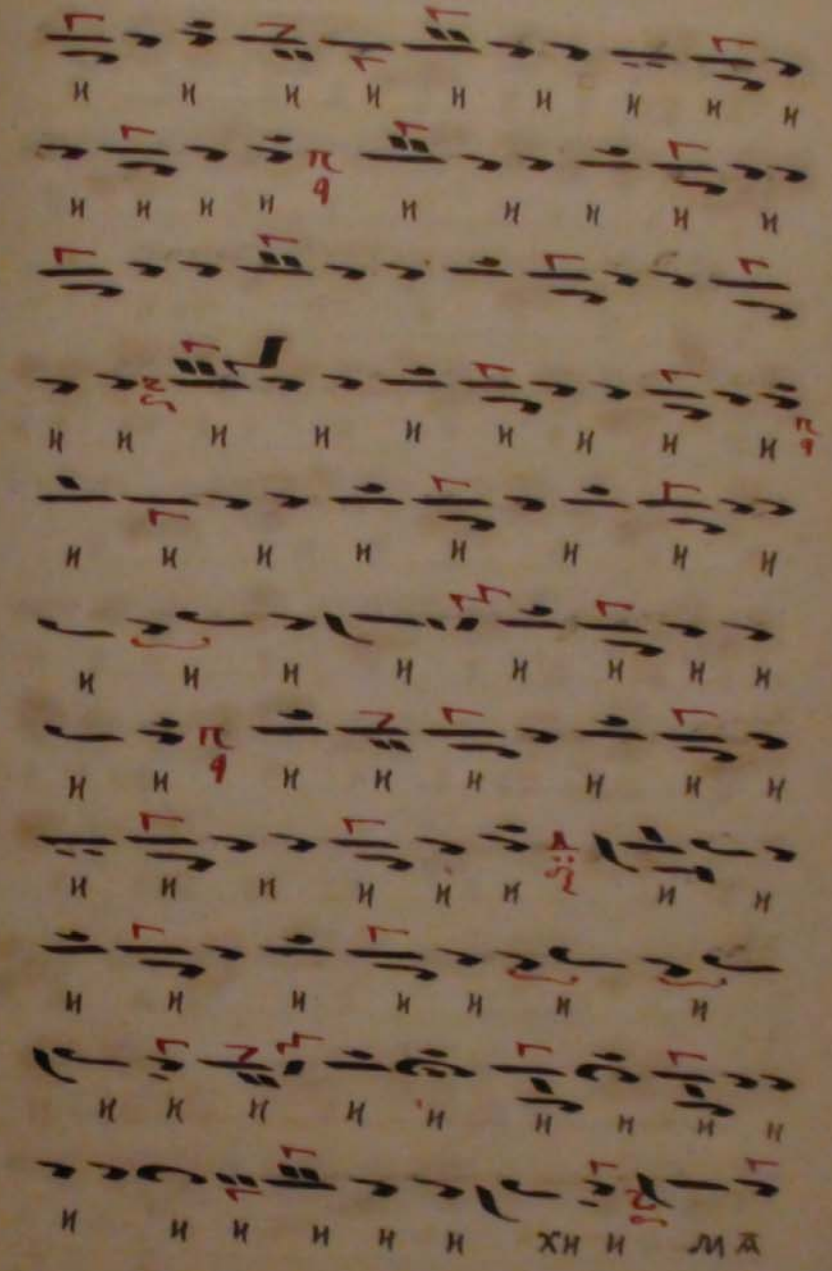 и и и и и и и и и
и и и и и и и и и
и и и и и и и и и
и и и и и и и и
и и и и и и и и
и и и и и и и и
и и и и и и и и
и и и и и и и
и и и и и и и и и
и и и и и и хи и ма